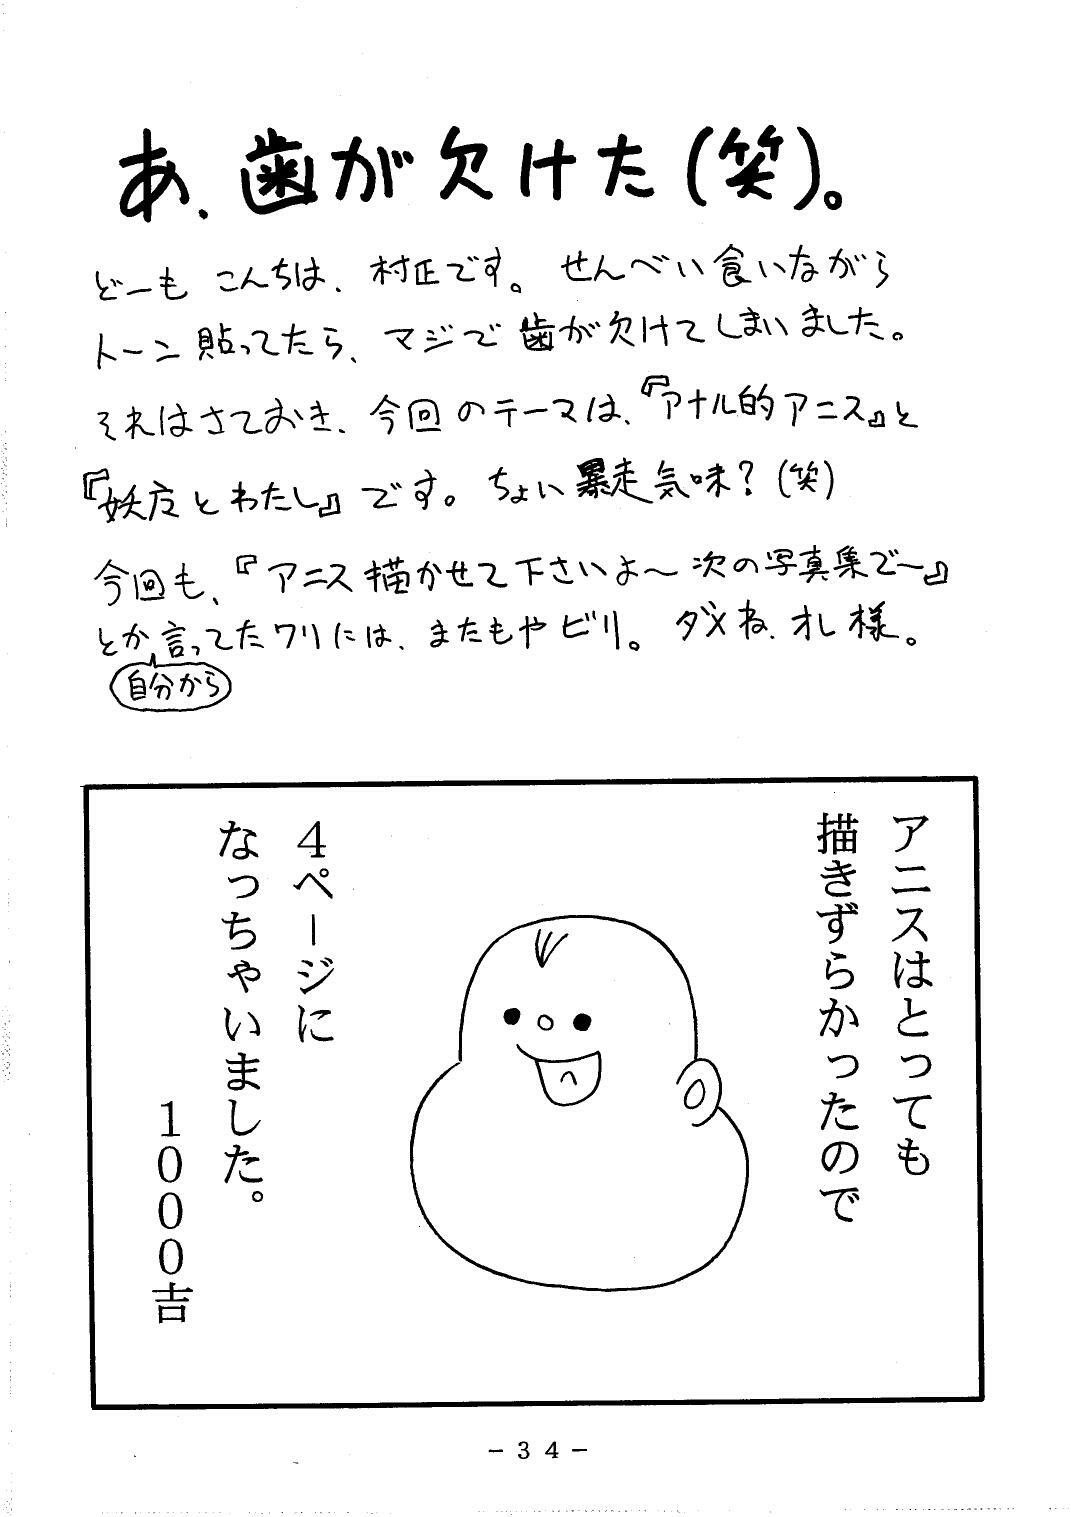 あ、歯が欠けた(笑)。
どーも こんちは、村正です。せんべい食いながら
トーン貼ってたら、マジで歯が欠けてしまいました。
それはさておき、今回のテーマは、『アナル的アニス』と
『妖方とわたし』です。ちょい暴走気味?(笑)
今回も、『アニス描かせて下さいよ〜次の写真集で〜』
とか言ってたワリには、またもやビリ。ダメね、オレ様。
自分から
アニスはとっても
描きずらかったので
4ページに
なっちゃいました。
1000吉
−34−